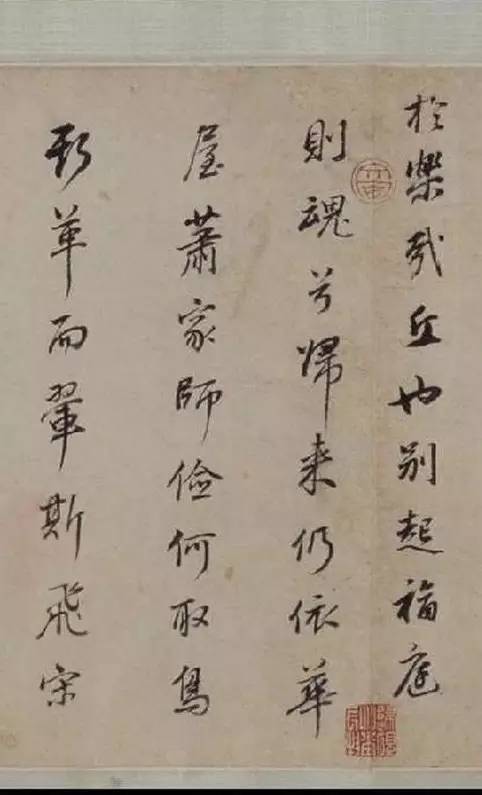 於樂哉丘也別起福庭
則魂兮歸来仍依華
屋蕭家師儉何取鳥
斯革而翬斯飛宋